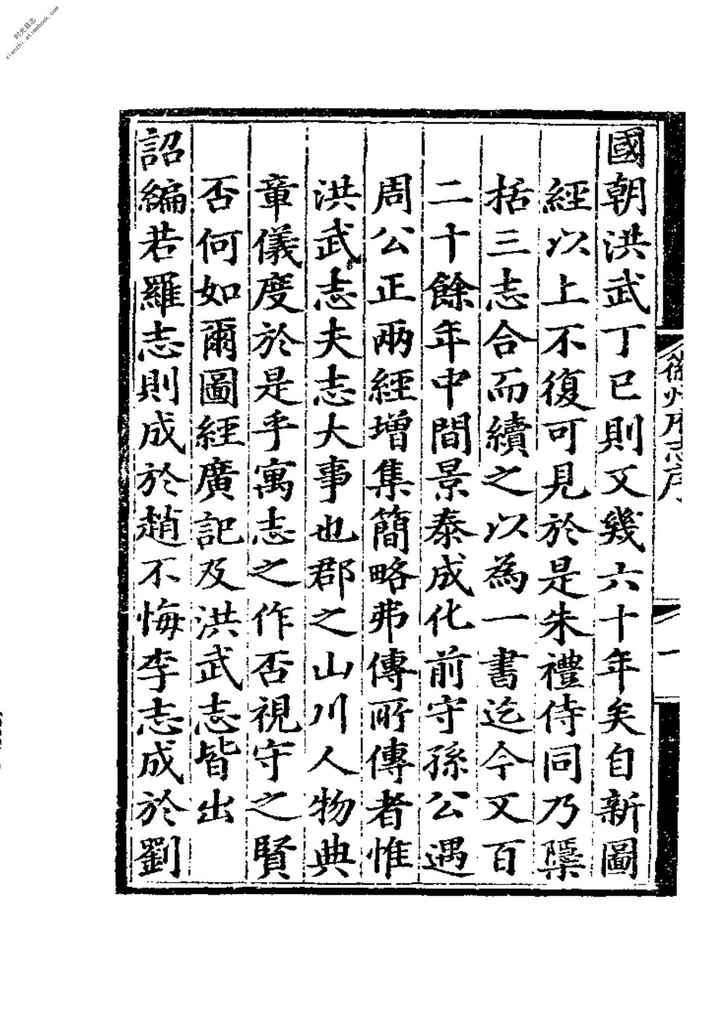 时光日志
國朝洪武丁巳則又幾六十年矣自新圖
經以上不復可見於是朱禮侍同乃檃
括三志合而續之以為一書迄今又百
二十餘年中間景泰成化前守孫公遇
周公正兩經增集簡略弗傳所傳者惟
洪武志夫志大事也郡之山川人物典
章儀度於是乎寓志之作否視守之賢
否何如爾圖經廣記及洪武志皆出
詔編若羅志則成於趙不悔李志成於劉
徽州府志序
一